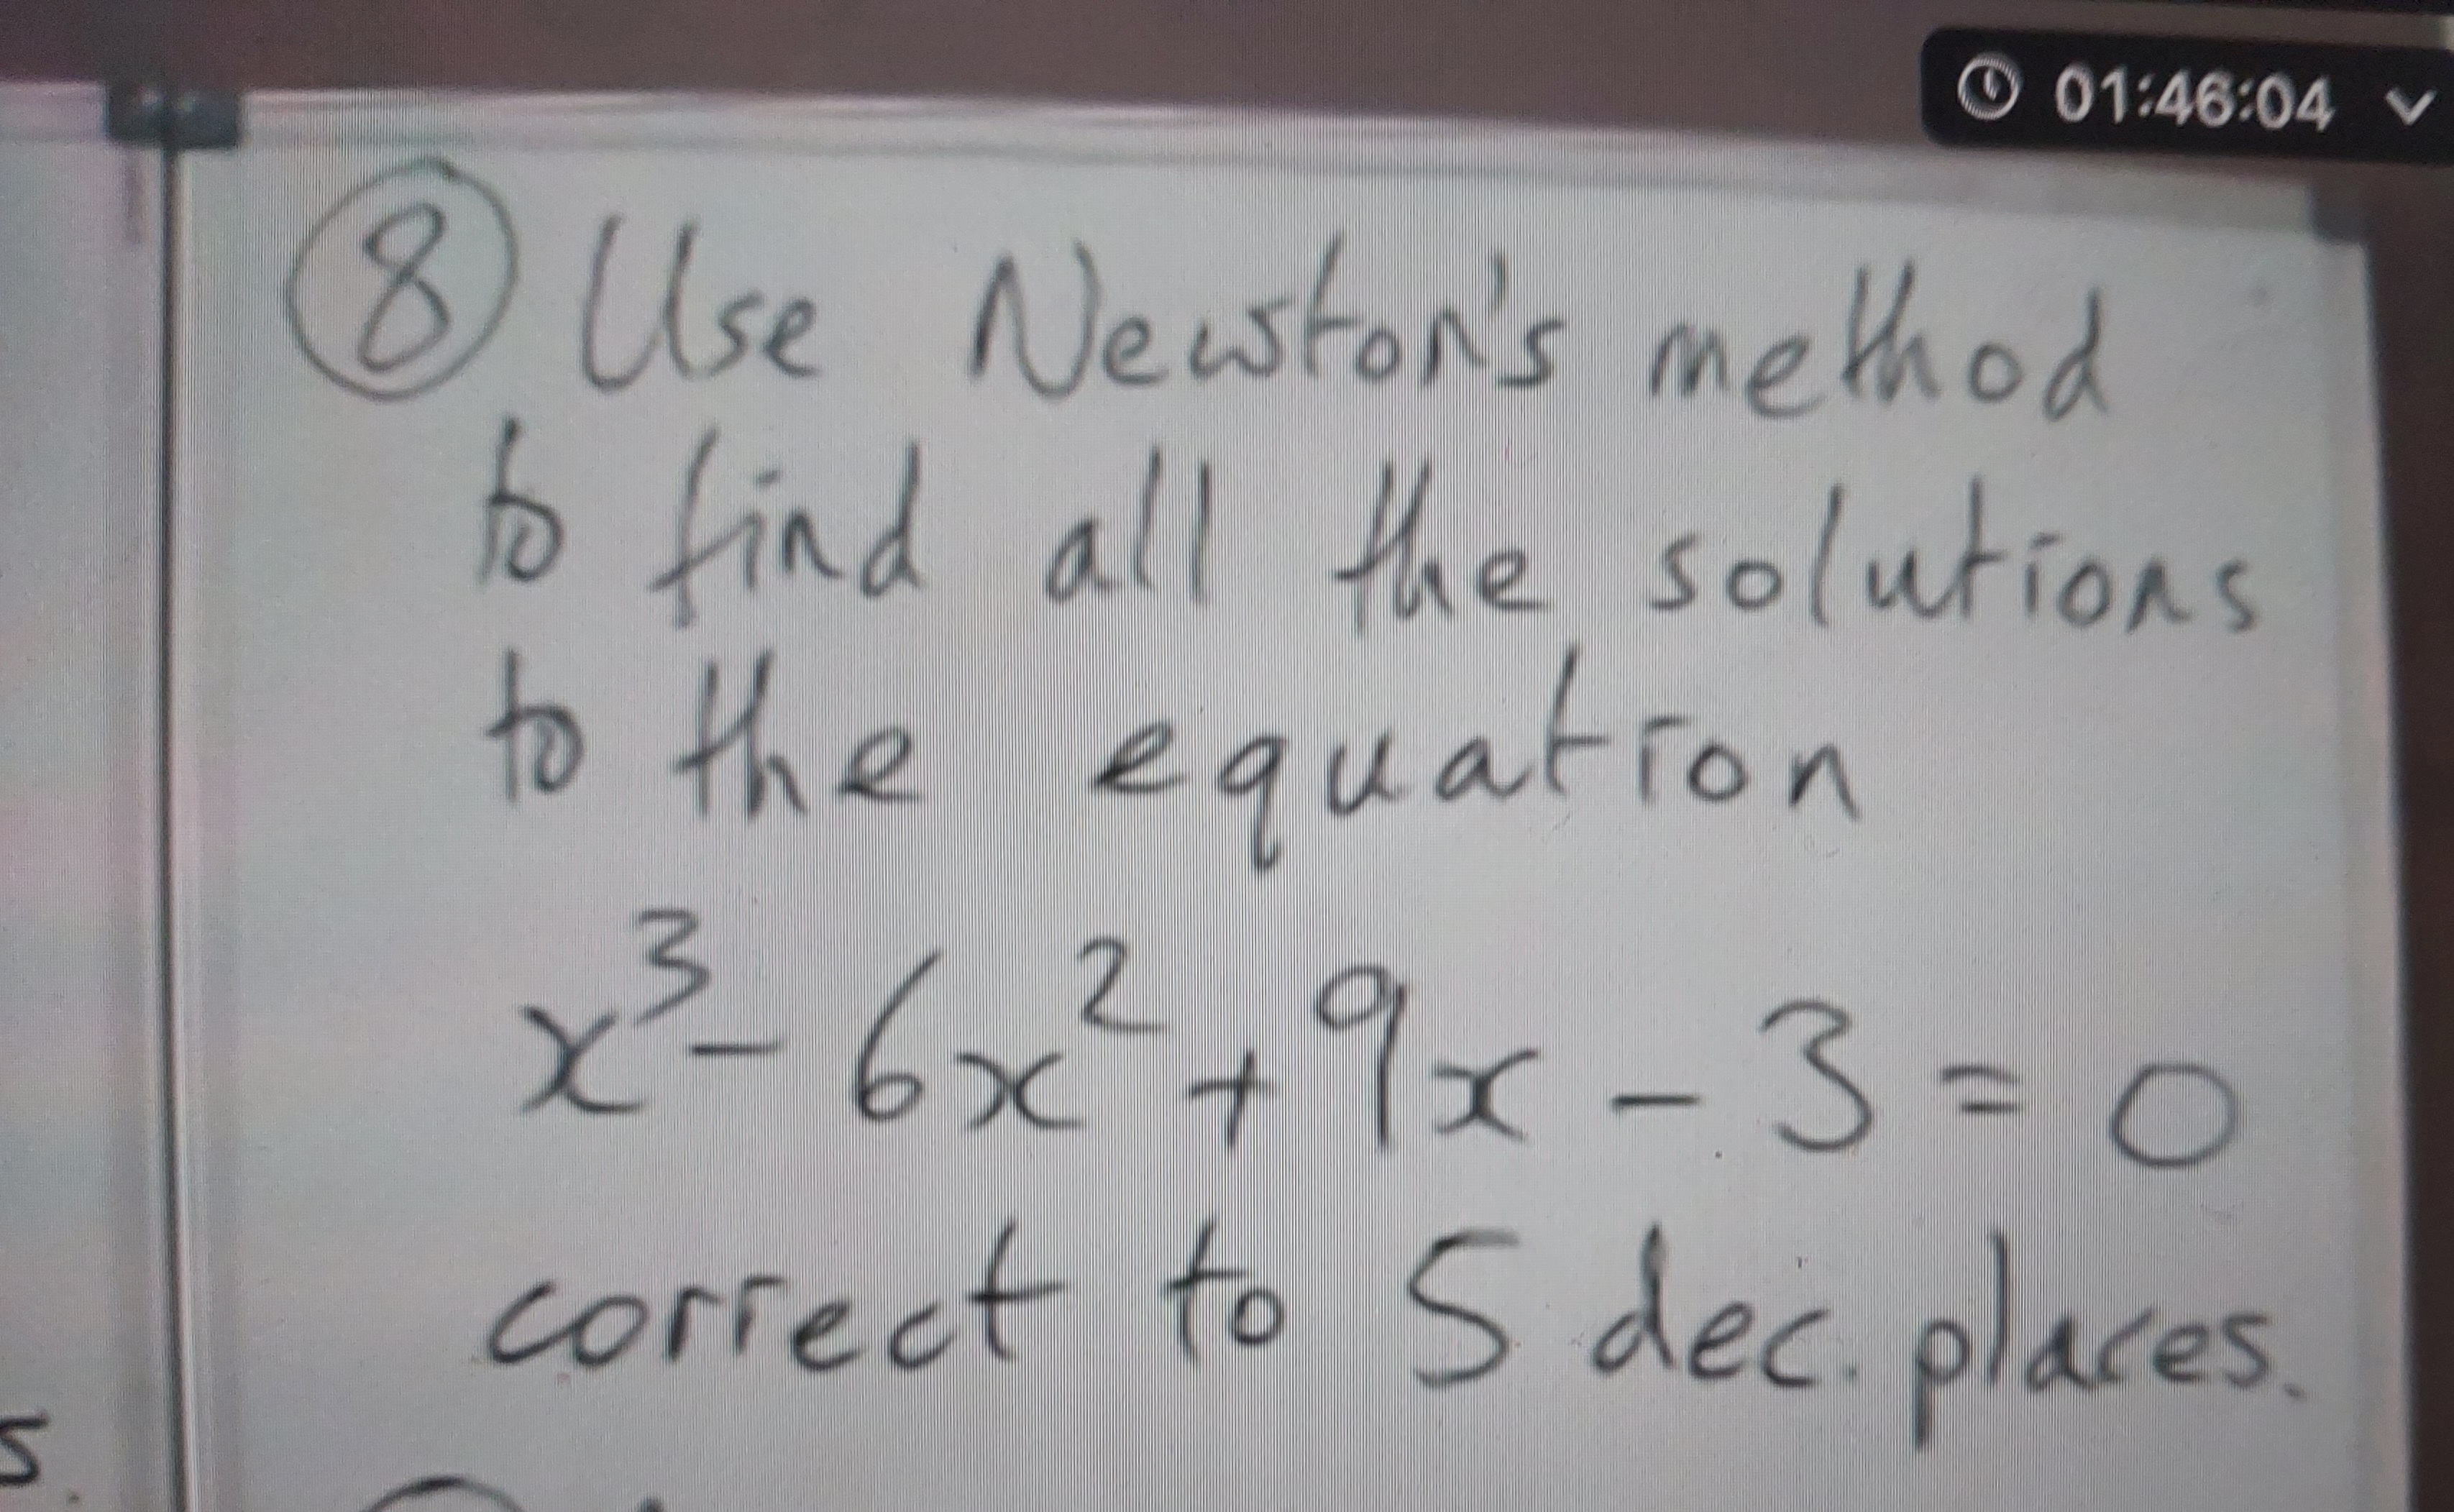 01:46:04
⑧ Use Newton's method
to find all the solutions
to the equation
x³ - 6x² + 9x - 3 = 0
correct to 5 dec. places.
s.